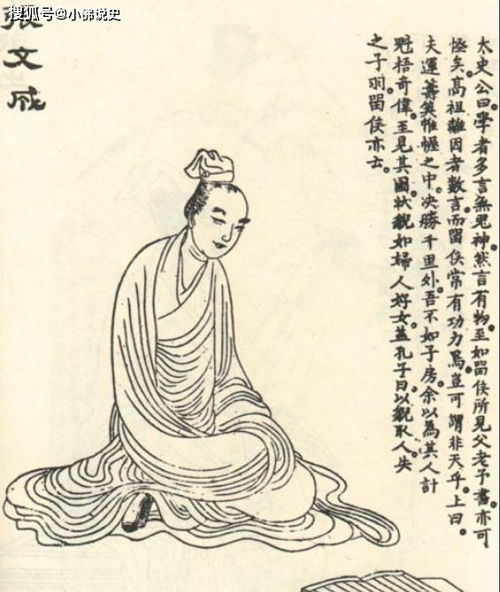 搜狐号@小佛说史
張文成
太史公曰。學者多言無鬼神。然言有物。至如留侯所見父老予書。亦可
恠矣。高祖離因者數言。而留侯常有功力焉。豈可謂非天乎。上曰。
夫運籌筴帷幄之中。決勝千里外。吾不如子房。余以為其人計
魁梧奇偉。至見其圖。狀貌如婦人好女。蓋孔子曰。以貌取人。失
之子羽。留侯亦云。